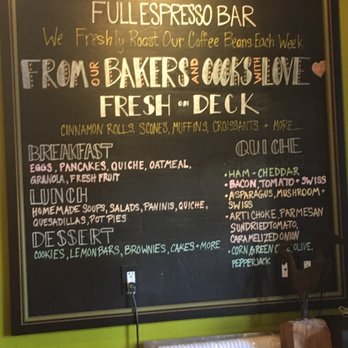 FULL ESPRESSO BAR
We Freshly Roast Our Coffee Beans Each Week
FROM OUR BAKERS AND COOKS WITH LOVE
FRESH ON DECK
CINNAMON ROLLS, SCONES, MUFFINS, CROISSANTS + MORE...
BREAKFAST
EGGS, PANCAKES, QUICHE, OATMEAL,
GRANOLA, FRESH FRUIT
LUNCH
HOMEMADE SOUPS, SALADS, PANINIS, QUICHE,
QUESADILLAS, POT PIES
DESSERT
COOKIES, LEMON BARS, BROWNIES, CAKES + MORE
QUICHE
• HAM + CHEDDAR
• BACON, TOMATO + SWISS
• ASPARAGUS, MUSHROOM +
SWISS
• ARTICHOKE, PARMESAN
SUNDRIED TOMATO,
CARAMELIZED ONION
• CORN, GREEN OLIVE,
PEPPERJACK